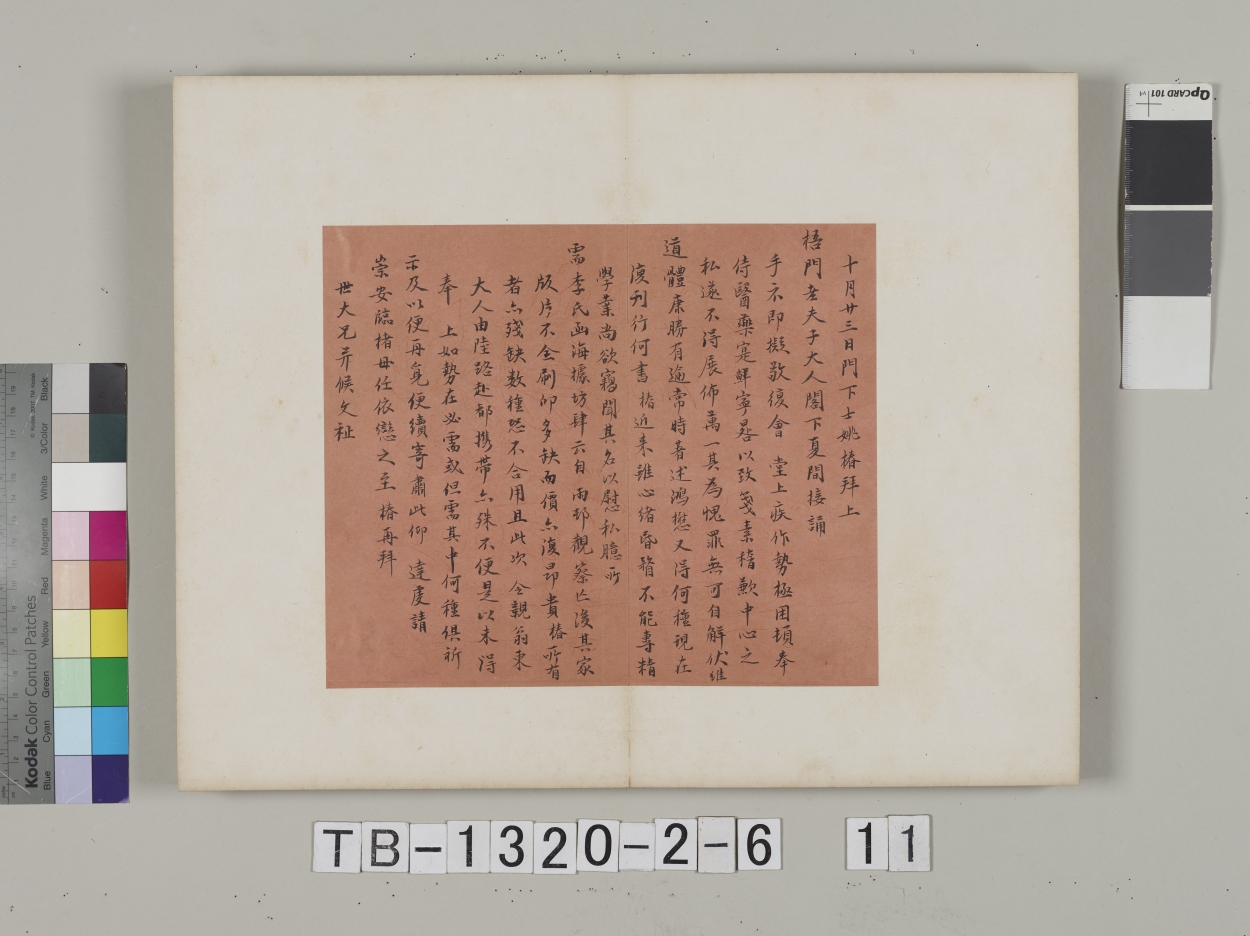 十月廿三日門下士姚椿拜上
梧門老夫子大人閣下夏間接誦
手示即擬敬復會 堂上疾作勢極困頓奉
侍醫藥寔鮮寧晷以致箋素稽歉中心之
私遂不得展佈萬一其為愧罪無可自解伏維
道體康勝有逾常時著述鴻懋又得何種現在
復刊行何書椿近來雖心緒昏瞀不能專精
學業尚欲竊聞其名以慰私臆所
需李氏函海據坊肆云自雨邨觀察亡後其家
版片不全刷印多缺而價亦復昂貴椿所有
者亦殘缺數種恐不合用且此次 令親翁東
大人由陸路赴都攜帶亦殊不便是以未得
奉 上如勢在必需或但需其中何種俱祈
示及以便再覓便續寄肅此仰 達虔請
崇安臨楮毋任依戀之至椿再拜
世大兄并候文祉
TB-1320-2-6 11
QpCARD 101
Kodak Color Control Patches
Blue Cyan Green Yellow Red Magenta White 3/Color Black